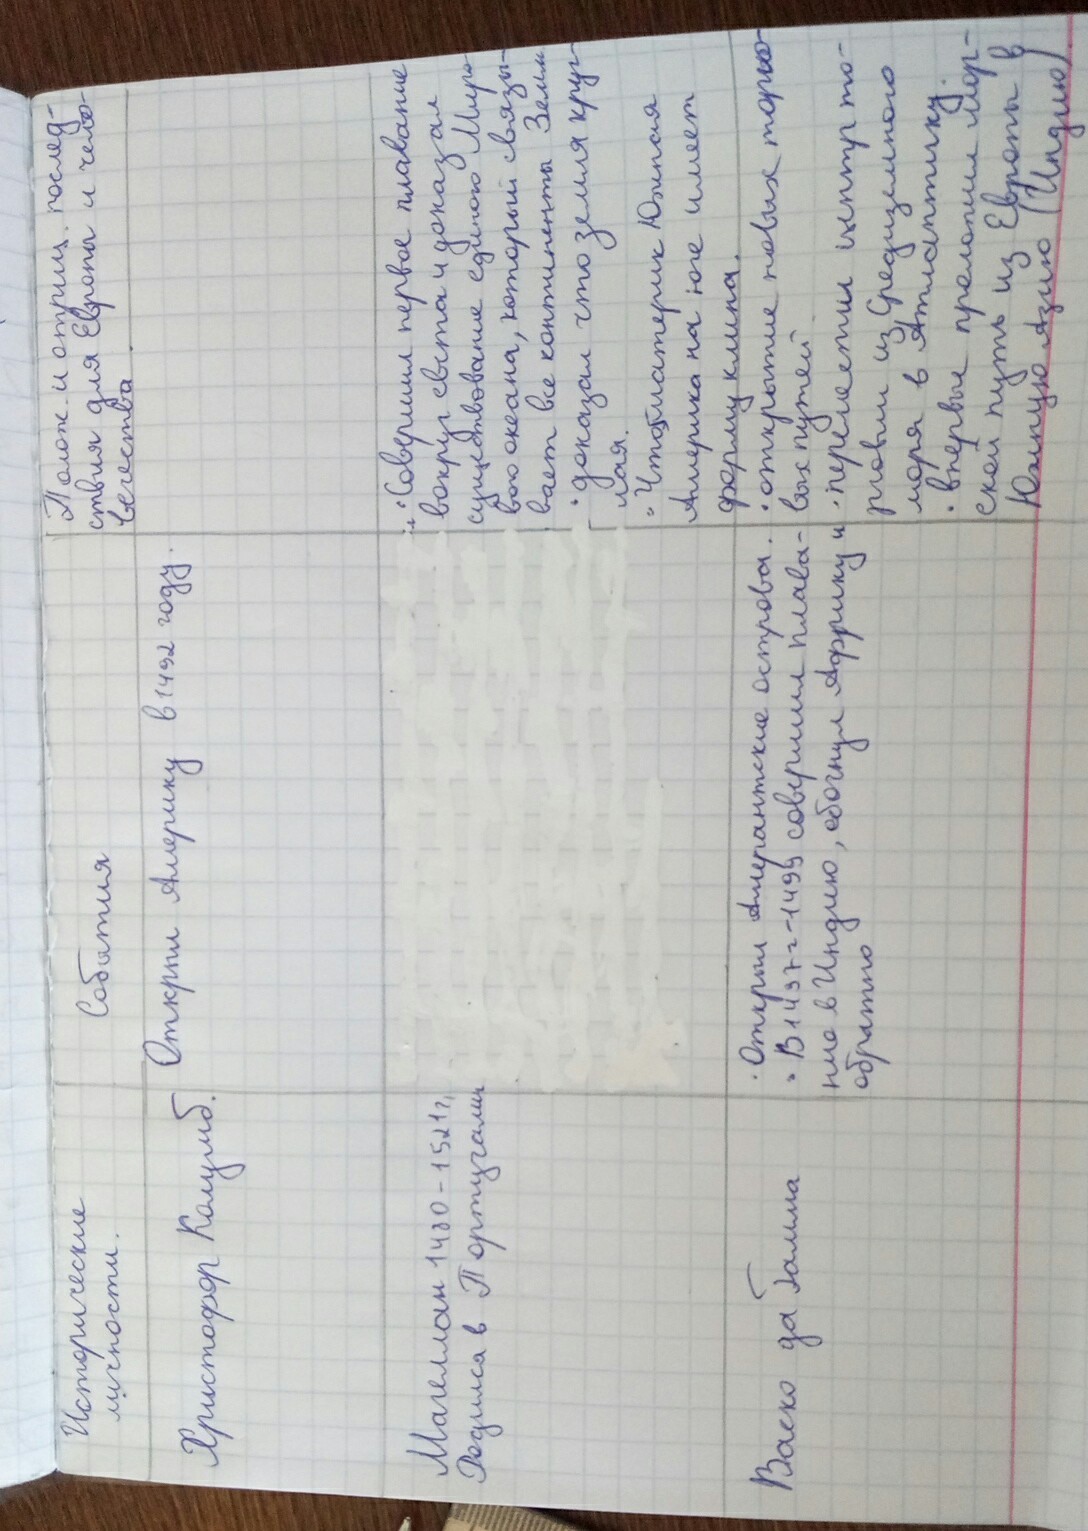 Исторические
личности.
События
Полож. и отриц. послед-
ствия для Европы и чело-
вечества
Христофор Колумб.
Открыл Америку в 1492 году.
Магеллан 1480-1521г,
Родился в Португалии
• Совершил первое плавание
вокруг света и доказал
существование единого Миро-
вого океана, который связы-
вает все континенты Земли
• доказал что земля круг-
лая.
• Что материк Южная
Америка на юге имеет
форму клина.
Васко да Гамма
• Открыл Амирантские острова.
• В 1497г-1499 совершил плава-
ние в Индию, обогнул Африку и
обратно
• открытие новых торго-
вых путей
• переместил центр то-
рговли из Средиземного
моря в Атлантику.
• впервые проложил мор-
ской путь из Европы в
Южную Азию (Индию)